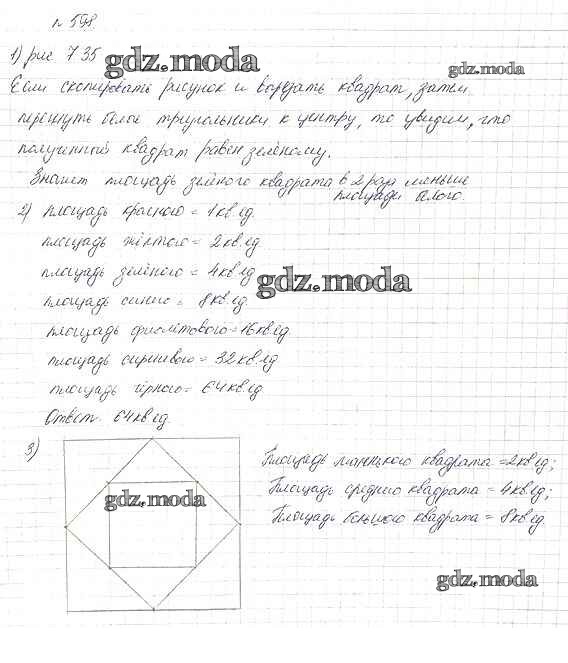 № 598.
1) рис 7 35
gdz.moda
gdz.moda
Если скопировать рисунок и вырезать квадрат, затем
перегнуть белые треугольники к центру, то увидим, что
полученный квадрат равен зелёному.
Значит площадь зелёного квадрата в 2 раза меньше
площади белого.
2) площадь красного = 1 кв. ед.
площадь жёлтого = 2 кв. ед.
площадь зелёного = 4 кв. ед
gdz.moda
площадь синего = 8 кв. ед.
площадь фиолетового = 16 кв. ед
площадь сиреневого = 32 кв. ед
площадь чёрного = 64 кв. ед
Ответ. 64 кв. ед.
3)
gdz.moda
Площадь маленького квадрата = 2 кв. ед;
Площадь среднего квадрата = 4 кв. ед;
Площадь большого квадрата = 8 кв. ед.
gdz.moda